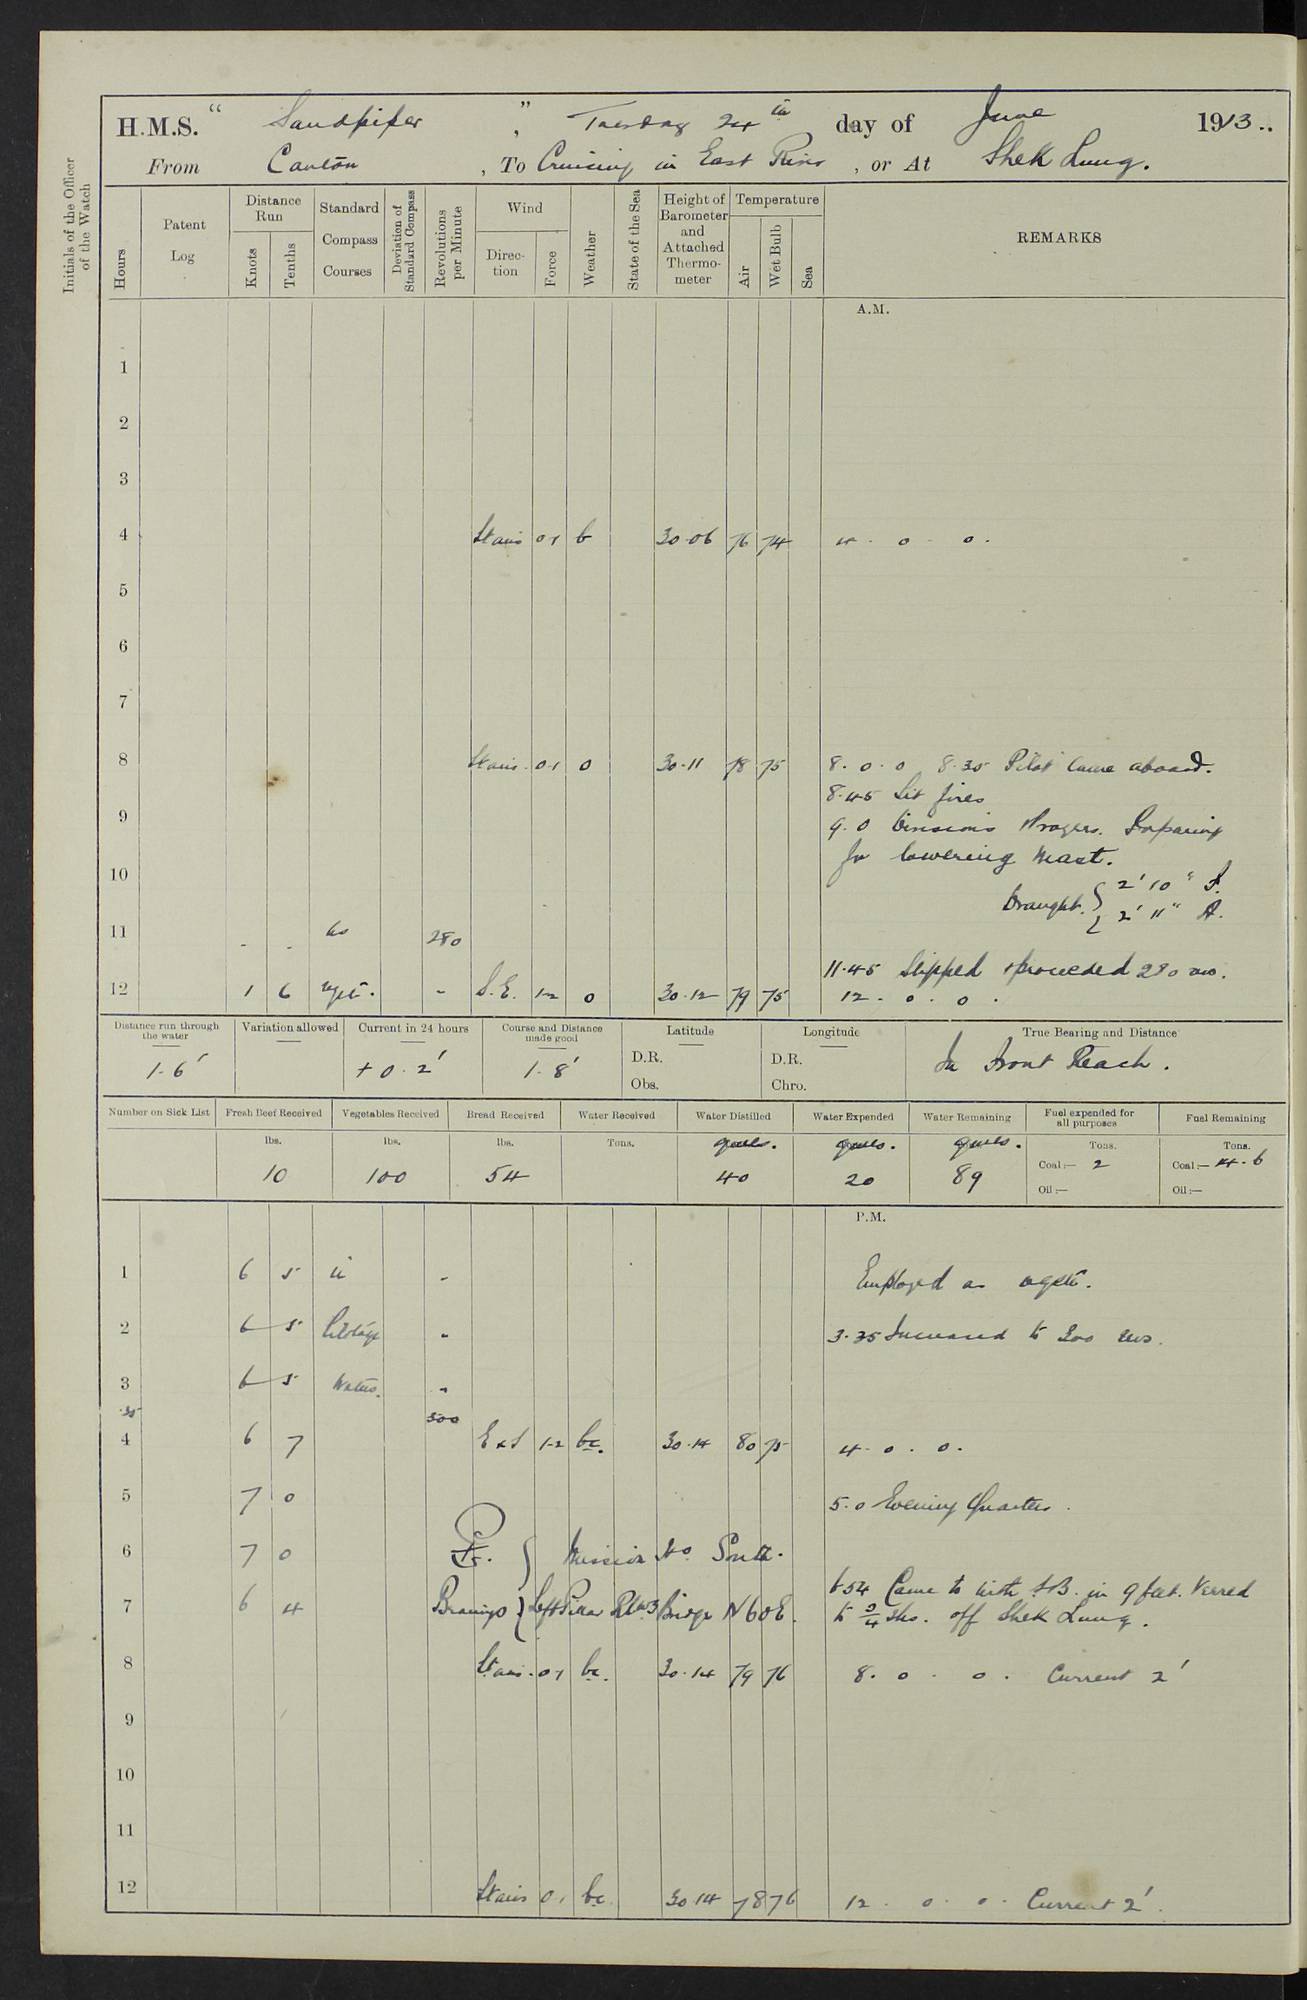 H.M.S. " Sandpiper ", Tuesday 24th day of June 1913..
From Canton, To Cruising in East River, or At Shek Lung.
Initials of the Officer
of the Watch
Hours
Patent
Log
Distance
Run
Knots
Tenths
Standard
Compass
Courses
Deviation of
Standard Compass
Revolutions
per Minute
Wind
Direc-
tion
Force
Weather
State of the Sea
Height of
Barometer
and
Attached
Thermo-
meter
Temperature
Air
Wet Bulb
Sea
REMARKS
A.M.
1
2
3
4 0-1 b 30.06 76 74 4. 0. 0.
5
6
7
8 0-1 0 30.11 78 75 8. 0. 0 8.30 Pilot came aboard.
8.45 Lit fires
9 9.0 Divisions & Prayers. Preparing
for lowering Mast.
10 Draught. { 2' 10" F.
2' 11" A.
11 - - as 280
11.45 Slipped & proceeded 280 revs.
12 1 6 reqte. - S.E. 1-2 0 30.12 79 75 12. 0. 0.
Distance run through
the water
1.6'
Variation allowed
Current in 24 hours
+ 0.2'
Course and Distance
made good
1.8'
Latitude
D.R.
Obs.
Longitude
D.R.
Chro.
True Bearing and Distance
In Front Reach.
Number on Sick List
Fresh Beef Received
lbs.
10
Vegetables Received
lbs.
100
Bread Received
lbs.
54
Water Received
Tons.
Water Distilled
galls.
40
Water Expended
galls.
20
Water Remaining
galls.
89
Fuel expended for
all purposes
Tons.
Coal:— 2
Oil:—
Fuel Remaining
Tons.
Coal:— 14.6
Oil:—
P.M.
1 6 5 in - Employed as reqte.
2 6 5 Pilotage - 3.35 Increased to 300 revs.
3 6 5 Waters. -
.35 300
4 6 7 E x S 1-2 bc. 30.14 80 75 4. 0. 0.
5 7 0 5.0 Evening Quarters.
6 7 0 Mission Ho. South.
6.54 Came to with S.B. in 9 feet. Veered
7 6 4 Bearings } Left Pillar Rlwy Bridge N60E. to 3/4 shs. off Shek Lung.
8 0-1 bc. 30.14 79 76 8. 0. 0. Current 2'
9
10
11
12 0-1 bc 30.14 78 76 12. 0. 0. Current 2'.